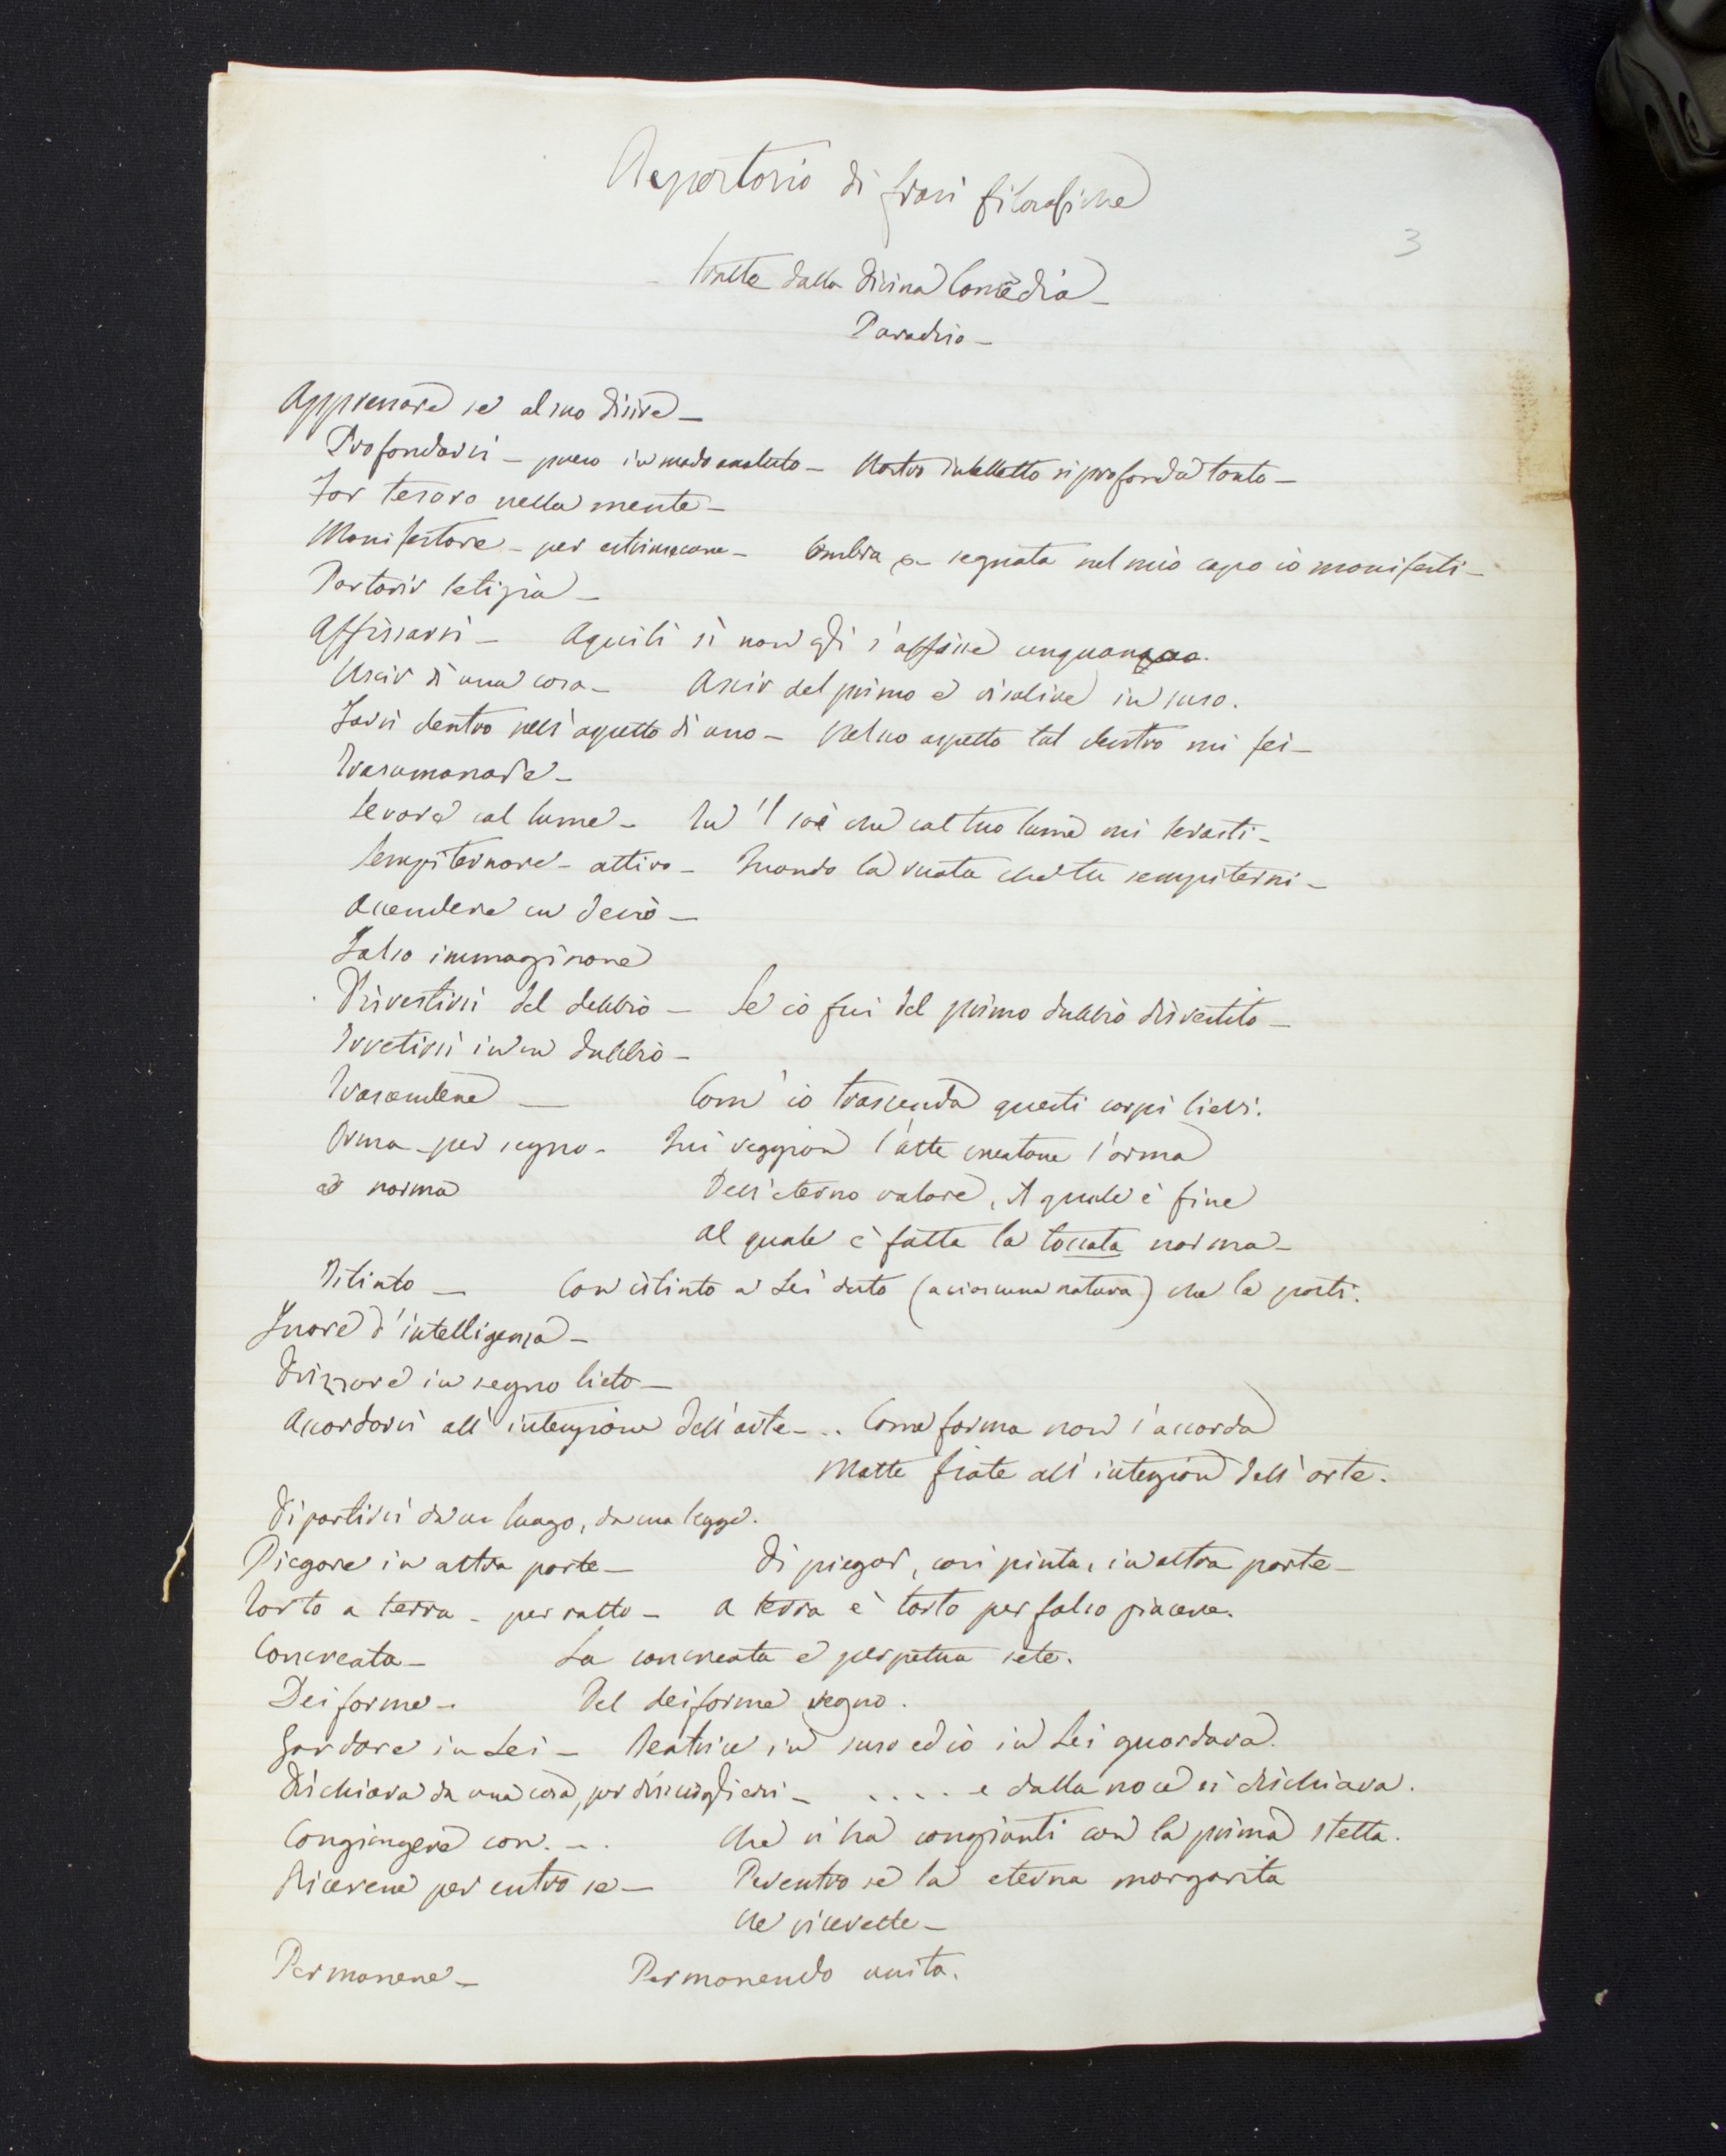 Repertorio di frasi filosofiche
3
tratte dalla Divina Comèdia -
Paradiso -
Appressare sè al suo disire -
Profondarsi - preso in modo assoluto - Nostro intelletto si profonda tanto -
Far tesoro nella mente -
Manifestare - per estrinsecare - Ombra segnata nel mio capo io manifesti -
Partorir letizia -
Affissarsi - Aquila sì non gli s'affisse unquanquo.
Uscir di una cosa - Uscir del primo e risalire in suso.
Farsi dentro nell'aspetto di uno - Nel suo aspetto tal dentro mi fei -
Trasumanare -
Levare col lume - Tu 'l sai che col tuo lume mi levasti -
Sempiternare - attivo - Quando la ruota che tu sempiterni -
Accendere un desio -
Falso immaginare
Disvestirsi del dubbio - Se io fui del primo dubbio disvestito -
Irretirsi in un dubbio -
Trascendere - Com' io trascenda questi corpi lievi.
Orma - per segno - Qui veggion l'alte creature l'orma
e norma Dell'eterno valore, il quale è fine
al quale è fatta la toccata norma -
Istinto - Con istinto a Lei dato (a ciascuna natura) che la porti.
Fuore d'intelligenza -
Drizzare in segno lieto -
Accordarsi all'intenzione dell'arte - .. Come forma non s'accorda
Molte fiate all'intenzion dell'arte.
Dipartirsi da un luogo, da una legge.
Piegare in altra parte - Di piegar, così pinta, in altra parte -
Torto a terra - per ratto - A terra è torto per falso piacere.
Concreata - La concreata e perpetua sete.
Deiforme - Del deiforme regno.
Gardare in Lei - Beatrice in suso ed io in Lei guardava.
Dischiava da una cosa, per disciogliersi - .... e dalla noce si dischiava.
Congiungere con. - . Che n'ha congiunti con la prima stella.
Ricevere per entro se - Perentro sè la eterna margarita
Ne ricevette -
Permanere - Permanendo unita.